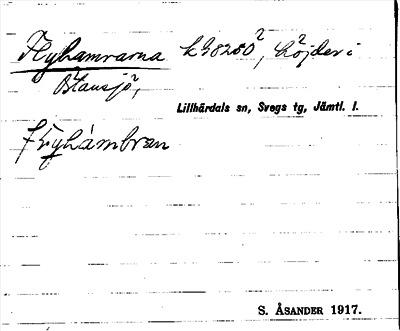 Flyhamrarna k 98250², höjder i
Blåusjö,
Lillhärdals sn, Svegs tg, Jämtl. l.
flỳhàmbran
S. ÅSANDER 1917.